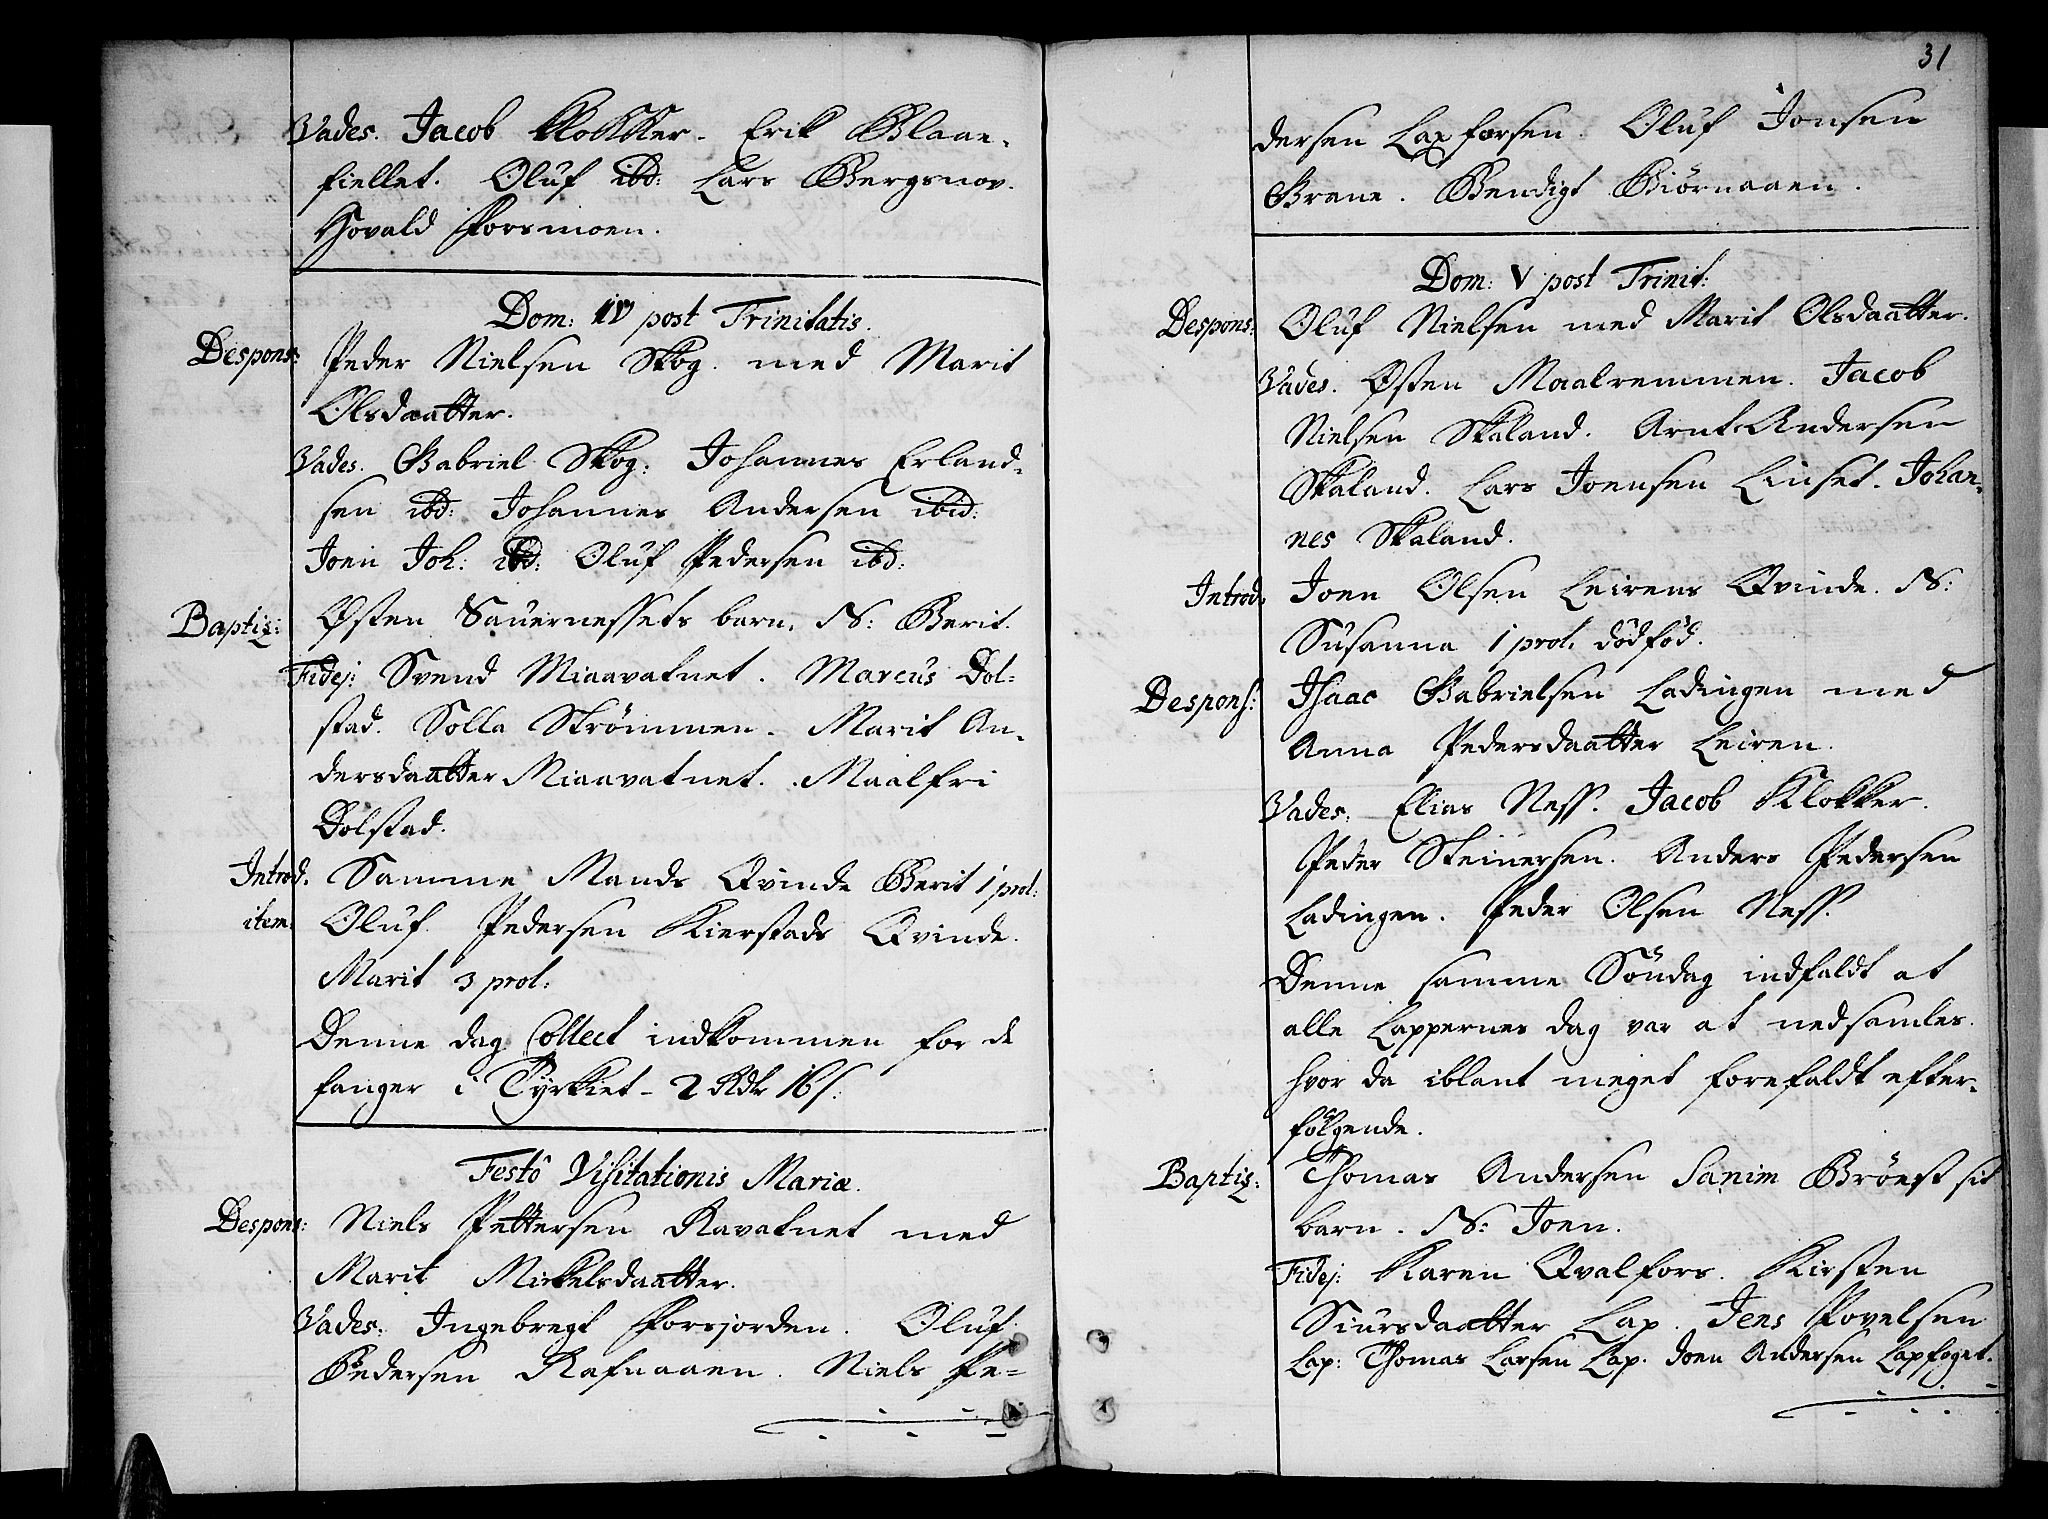 Vades. Jacob Klokker. Erik Blaae-
fiellet. Oluf ibd: Lars Bergsnov.
Hovald Forsmoen.
Dom: IV post Trinitatis.
Despons: Peder Nielsen Skog. med Marit
Olsdaatter.
Vades. Gabriel Skog: Johannes Erland-
sen ibd: Johannes Andersen ibid:
Joen Joh: ibd: Oluf Pedersen ibd:
Baptiz: Østen Sauernessets barn. N: Berit.
Fidej: Svend Miaavatnet. Marcus Dol-
stad. Solla Strømmen. Marit An-
dersdaatter Miaavatnet. Maalfri
Dolstad.
Introd. Samme Mands Qvinde Berit 1 prol:
item. Oluf Pedersen Kierstads Qvinde.
Marit 3 prol:
Denne dag Collect indkommen for de
fanger i Tyrkiet - 2 Rdlr 16 s:
Festô Visitationis Mariæ.
Despons: Niels Pettersen Ravatnet med
Marit Mickelsdaatter.
Vades: Ingebregt Forsjorden. Oluf
Pedersen Rafnaaen. Niels Pe-
31
dersen Laxforsen. Oluf Jonsen
Grane. Bendigt Biørnaaen.
Dom: V post Trinit:
Despons: Oluf Nielsen med Marit Olsdaatter.
Vades. Østen Maalremmen. Jacob
Nielsen Skaland. Arnt Andersen
Skaland. Lars Joensen Linset. Johan-
nes Skaland.
Introd. Joen Olsen Leirens Qvinde. N:
Susanna 1 prol. dødfød.
Despons: Isaac Gabrielsen Ladingen med
Anna Pedersdaatter Leiren.
Vades: Elias Ness. Jacob Klokker.
Peder Steinersen. Anders Pedersen
Ladingen. Peder Olsen Ness.
Denne samme Söndag indfaldt at
alle Lappernes dag var at nedsamles.
hvor da iblant meget forefaldt efter-
følgende.
Baptiz: Thomas Andersen Sanim Brönst sit
barn. N: Joen.
Fidej: Karen Qvalfors. Kirsten
Siursdaatter Lap. Jens Povelsen
Lap: Thomas Larsen Lap. Joen Andersen Lapfoget.